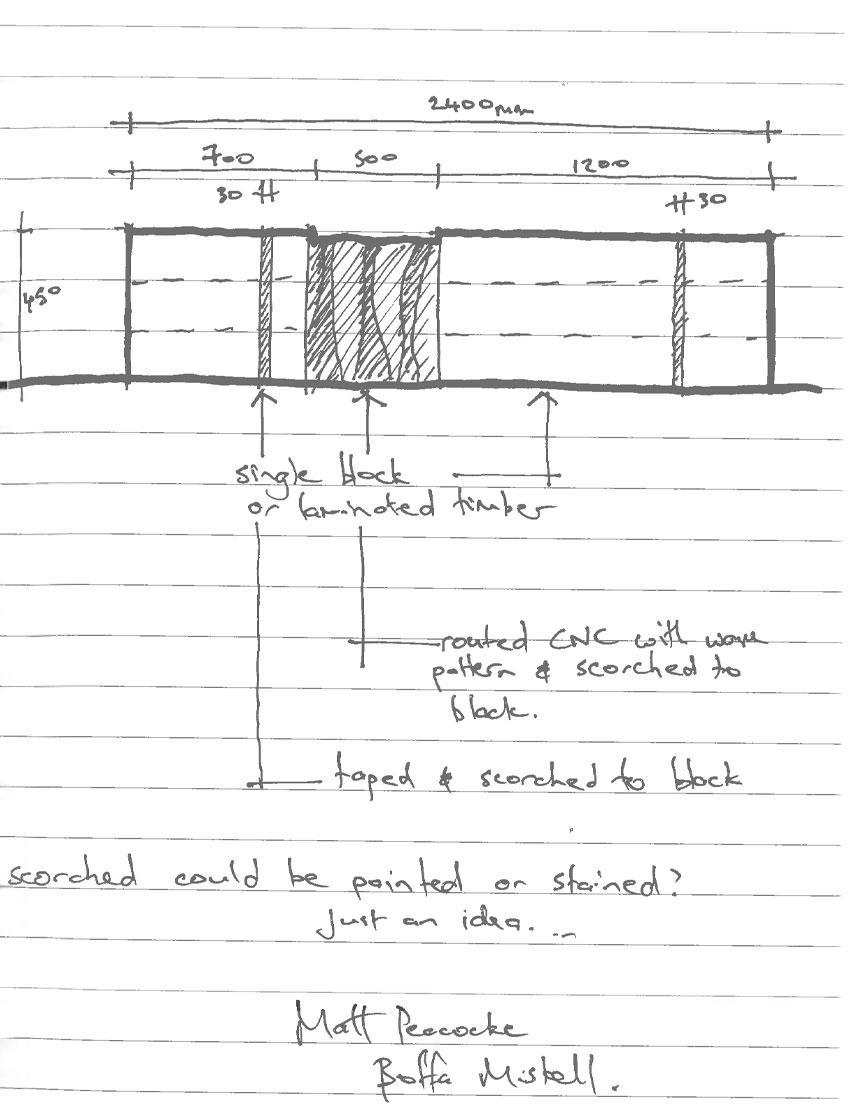 2400mm
700 500 1200
30 30
450
single block
or laminated timber
routed CNC with wave
pattern & scorched to
black.
taped & scorched to black
scorched could be painted or stained?
Just an idea...
Matt Peacocke
Boffa Miskell.